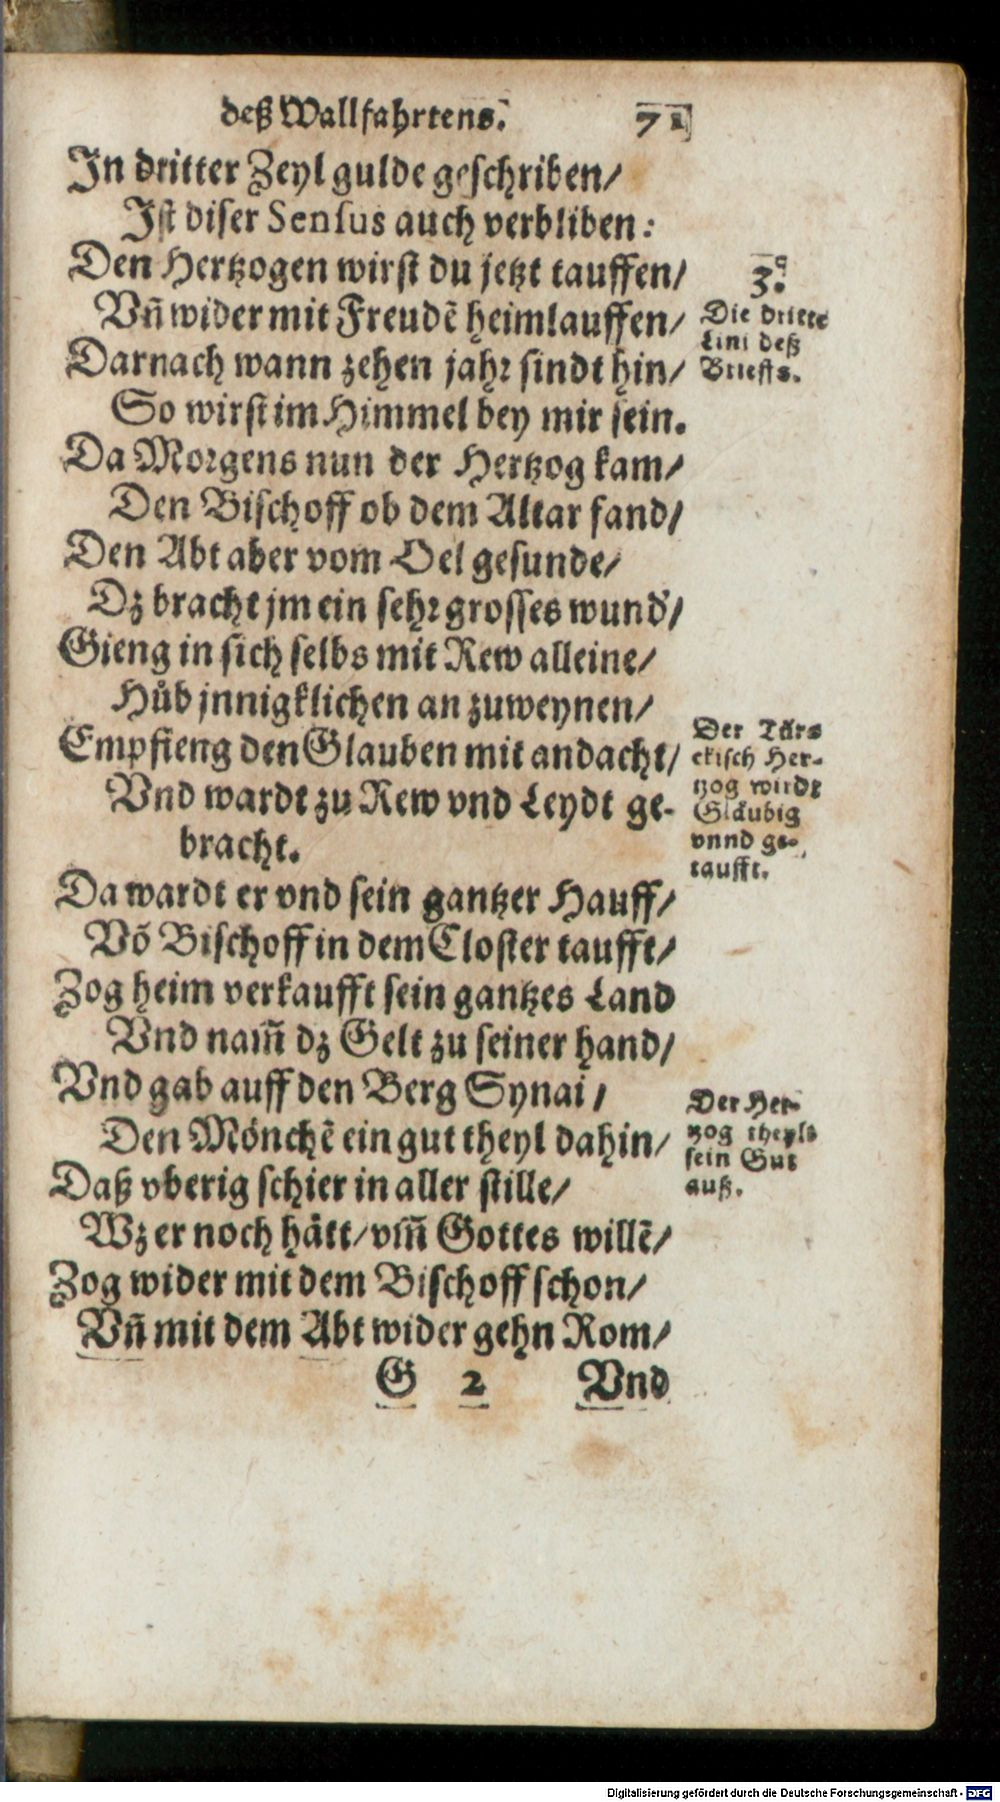 deß Wallfahrtens. 71
In dritter Zeyl gulde geschriben/
Ist diser Sensus auch verbliben:
Den Hertzogen wirst du jetzt tauffen/
Vñ wider mit Freudẽ heimlauffen/
Darnach wann zehen jahr sindt hin/
So wirst im Himmel bey mir sein.
Da Morgens nun der Hertzog kam/
Den Bischoff ob dem Altar fand/
Den Abt aber vom Oel gesunde/
Dz bracht jm ein sehr grosses wund'/
Gieng in sich selbs mit Rew alleine/
Hůb jnnigklichen an zuweynen/
Empfieng den Glauben mit andacht/
Vnd wardt zu Rew vnd Leydt ge-
bracht.
Da wardt er vnd sein gantzer Hauff/
Võ Bischoff in dem Closter taufft/
Zog heim verkaufft sein gantzes Land
Vnd nam̃ dz Gelt zu seiner hand/
Vnd gab auff den Berg Synai/
Den Mönchẽ ein gut theyl dahin/
Daß vberig schier in aller stille/
Wz er noch hätt/vm̃ Gottes willẽ/
Zog wider mit dem Bischoff schon/
Vñ mit dem Abt wider gehn Rom/
G 2 Vnd
3.
Die dritte
Lini deß
Brieffs.
Der Tür-
ckisch Her-
tzog wirdt
Gläubig
vnnd ge-
taufft.
Der Her-
tzog theylt
sein Gut
auß.
Digitalisierung gefördert durch die Deutsche Forschungsgemeinschaft - DFG